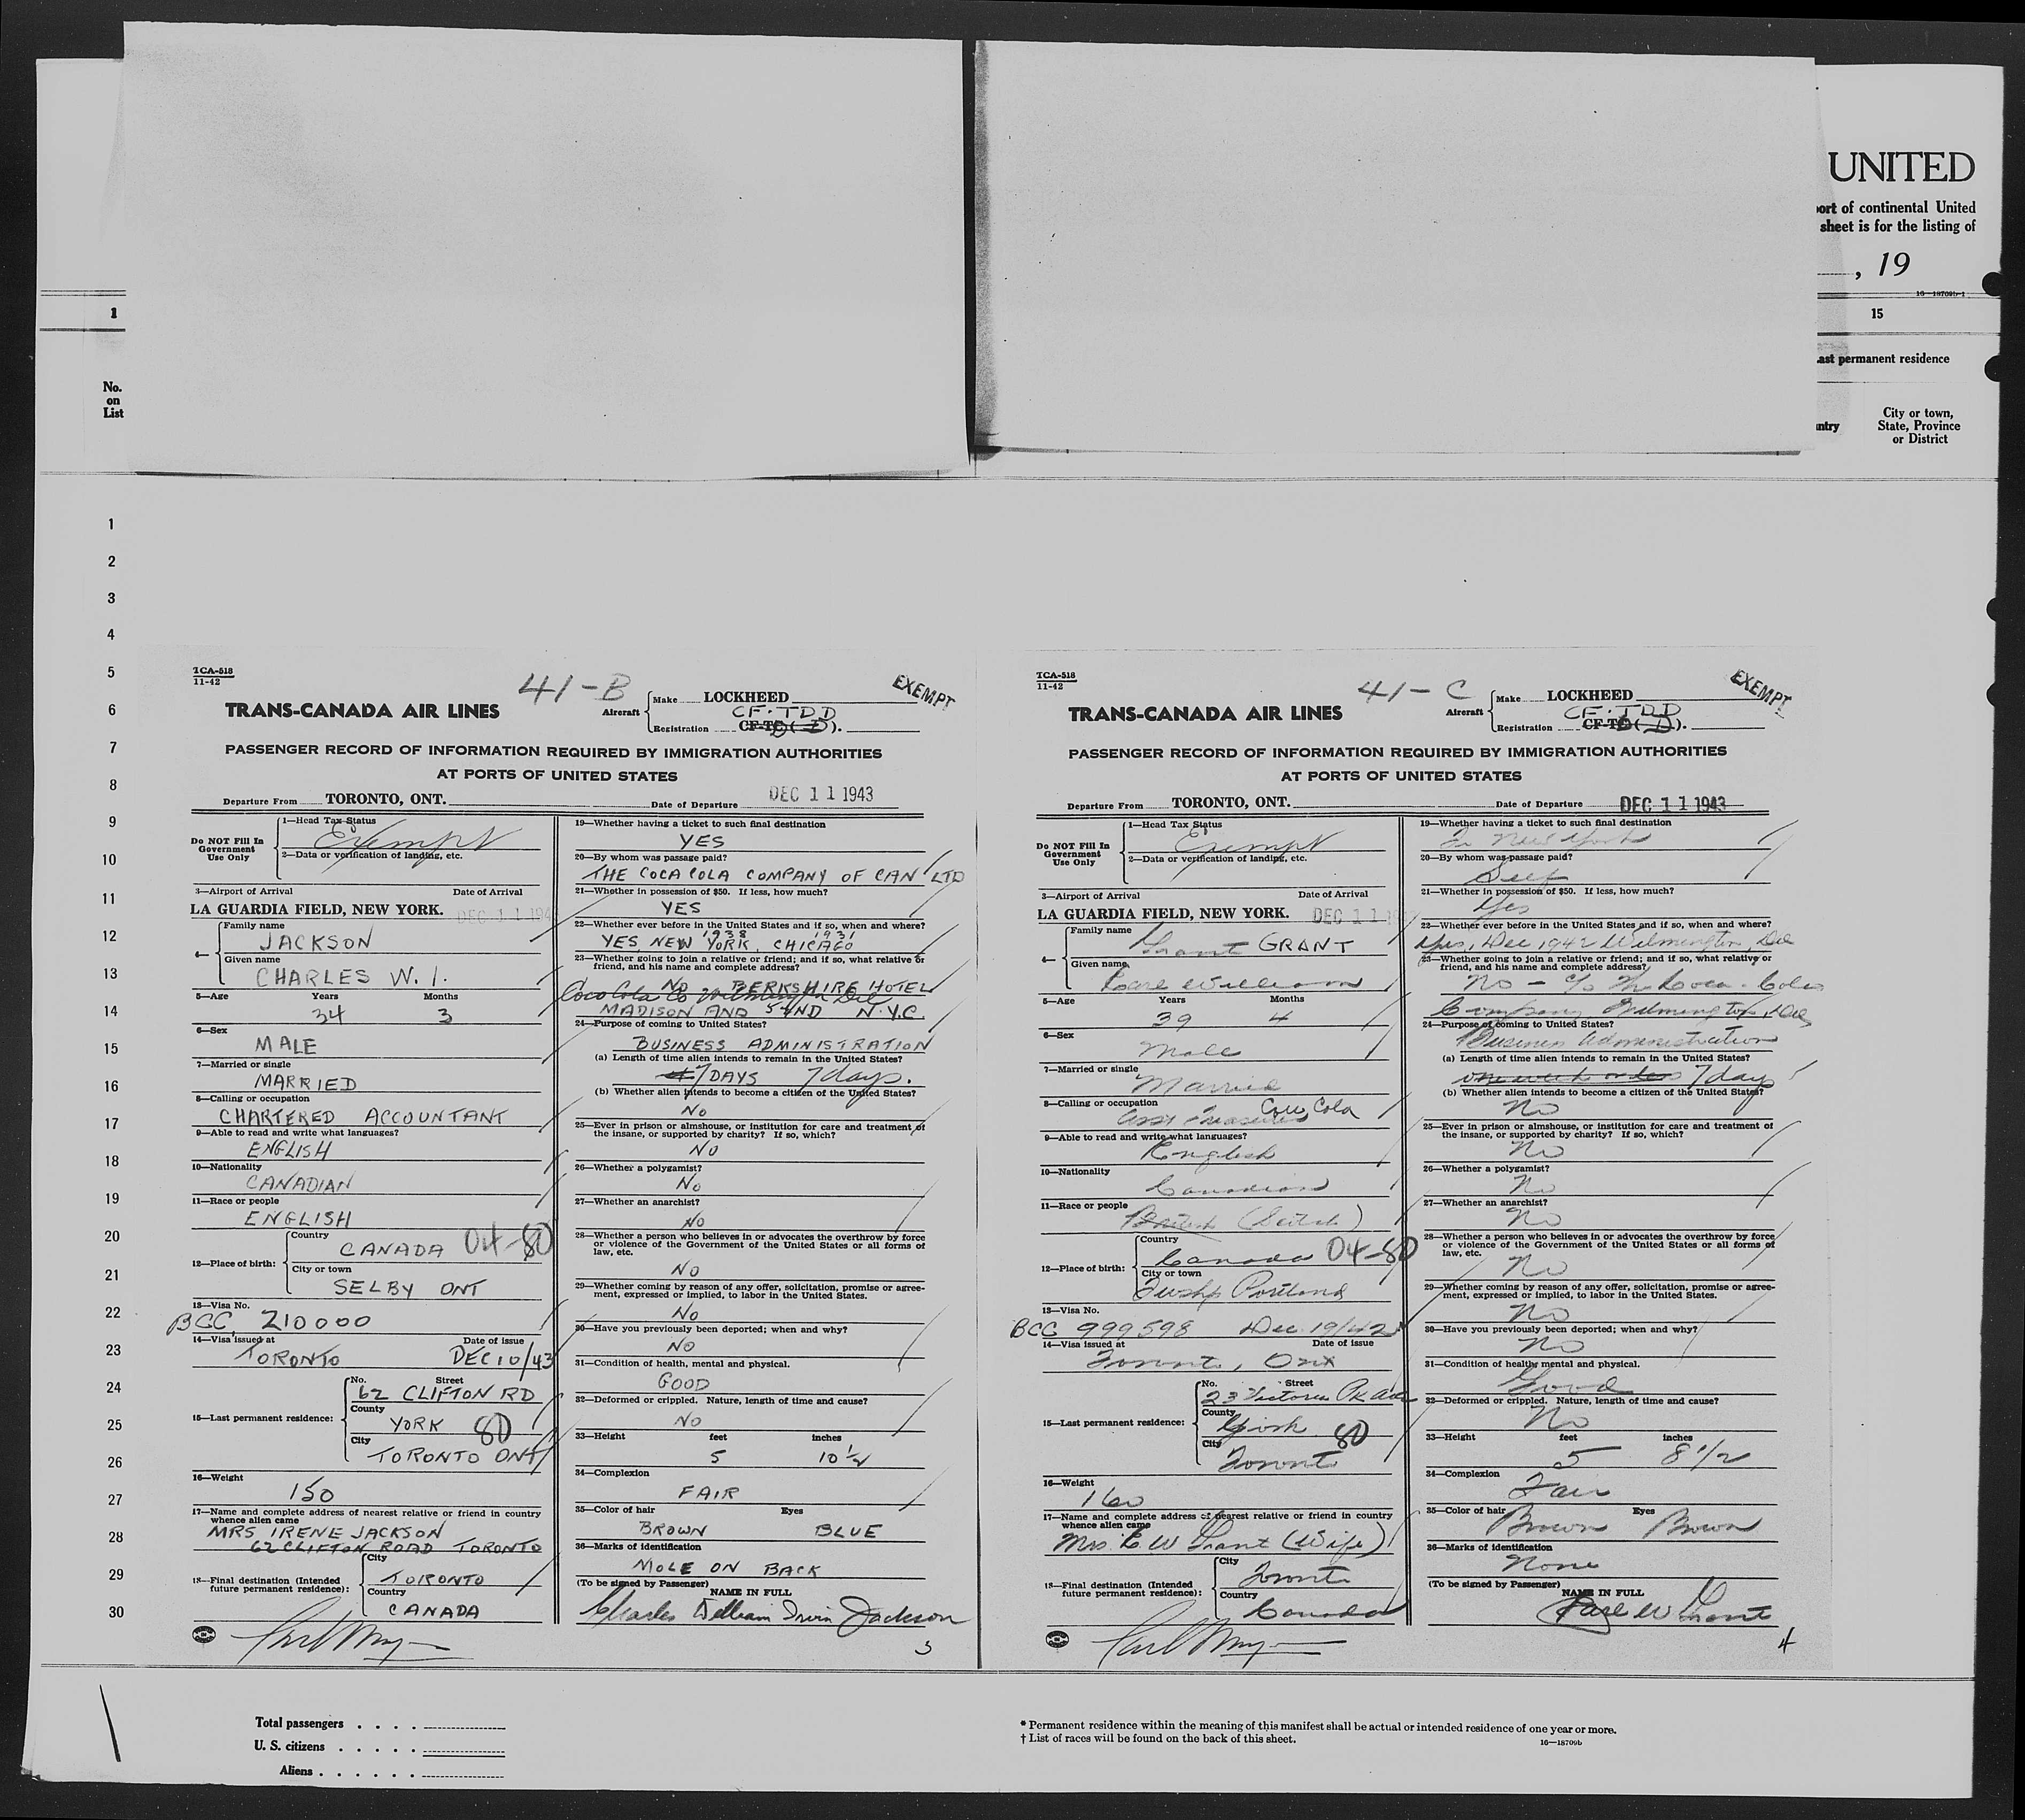 UNITED
port of continental United
sheet is for the listing of
, 19
16—18709b-1
1
15
ast permanent residence
No.
on
List
ntry
City or town,
State, Province
or District
1
2
3
4
5
6
7
8
9
10
11
12
13
14
15
16
17
18
19
20
21
22
23
24
25
26
27
28
29
30
TCA-518
11-42
41-B
EXEMPT
TRANS-CANADA AIR LINES
Aircraft
Make LOCKHEED
CF-TDD
Registration CF-TC ( D ).
PASSENGER RECORD OF INFORMATION REQUIRED BY IMMIGRATION AUTHORITIES
AT PORTS OF UNITED STATES
Departure From TORONTO, ONT. Date of Departure DEC 11 1943
Do NOT Fill In
Government
Use Only
1—Head Tax Status
Exempt
2—Data or verification of landing, etc.
3—Airport of Arrival Date of Arrival
LA GUARDIA FIELD, NEW YORK. DEC 11 194
4—
Family name
JACKSON
Given name
CHARLES W. I.
5—Age Years Months
34 3
6—Sex
MALE
7—Married or single
MARRIED
8—Calling or occupation
CHARTERED ACCOUNTANT
9—Able to read and write what languages?
ENGLISH
10—Nationality
CANADIAN
11—Race or people
ENGLISH
12—Place of birth:
Country
CANADA 04-80
City or town
SELBY ONT
13—Visa No.
BCC 210000
14—Visa issued at Date of issue
TORONTO DEC 10/43
15—Last permanent residence:
No. Street
62 CLIFTON RD
County
YORK 80
City
TORONTO ONT
16—Weight
150
17—Name and complete address of nearest relative or friend in country
whence alien came
MRS IRENE JACKSON
62 CLIFTON ROAD TORONTO
18—Final destination (Intended
future permanent residence):
City
TORONTO
Country
CANADA
19—Whether having a ticket to such final destination
YES
20—By whom was passage paid?
THE COCA COLA COMPANY OF CAN LTD
21—Whether in possession of $50. If less, how much?
YES
22—Whether ever before in the United States and if so, when and where?
1938 1931
YES, NEW YORK, CHICAGO
23—Whether going to join a relative or friend; and if so, what relative or
friend, and his name and complete address?
NO BERKSHIRE HOTEL
Coca Cola Co Wilmington Del
MADISON AND 52ND N.Y.C.
24—Purpose of coming to United States?
BUSINESS ADMINISTRATION
(a) Length of time alien intends to remain in the United States?
7 DAYS 7 days.
(b) Whether alien intends to become a citizen of the United States?
NO
25—Ever in prison or almshouse, or institution for care and treatment of
the insane, or supported by charity? If so, which?
NO
26—Whether a polygamist?
NO
27—Whether an anarchist?
NO
28—Whether a person who believes in or advocates the overthrow by force
or violence of the Government of the United States or all forms of
law, etc.
NO
29—Whether coming by reason of any offer, solicitation, promise or agree-
ment, expressed or implied, to labor in the United States.
NO
30—Have you previously been deported; when and why?
NO
31—Condition of health, mental and physical.
GOOD
32—Deformed or crippled. Nature, length of time and cause?
NO
33—Height feet inches
5 10 1/2
34—Complexion
FAIR
35—Color of hair Eyes
BROWN BLUE
36—Marks of identification
MOLE ON BACK
(To be signed by Passenger)
NAME IN FULL
Charles William Irvin Jackson
3
TCA-518
11-42
41-C
EXEMPT
TRANS-CANADA AIR LINES
Aircraft
Make LOCKHEED
CF-TDD
Registration CF-TC ( D ).
PASSENGER RECORD OF INFORMATION REQUIRED BY IMMIGRATION AUTHORITIES
AT PORTS OF UNITED STATES
Departure From TORONTO, ONT. Date of Departure DEC 11 1943
Do NOT Fill In
Government
Use Only
1—Head Tax Status
Exempt
2—Data or verification of landing, etc.
3—Airport of Arrival Date of Arrival
LA GUARDIA FIELD, NEW YORK. DEC 11
4—
Family name
Grant GRANT
Given name
Carl William
5—Age Years Months
39 4
6—Sex
Male
7—Married or single
Married
8—Calling or occupation
Asst Treasurer Coca Cola
9—Able to read and write what languages?
English
10—Nationality
Canadian
11—Race or people
British (Scotch)
12—Place of birth:
Country
Canada 04-80
City or town
Twshp Portland
13—Visa No.
BCC 999598 Dec 19/42
14—Visa issued at Date of issue
Toronto, Ont
15—Last permanent residence:
No. Street
23 Victoria Pk Ave
County
York 80
City
Toronto
16—Weight
160
17—Name and complete address of nearest relative or friend in country
whence alien came
Mrs. C W Grant (Wife)
18—Final destination (Intended
future permanent residence):
City
Toronto
Country
Canada
19—Whether having a ticket to such final destination
To New York
20—By whom was passage paid?
Self
21—Whether in possession of $50. If less, how much?
Yes
22—Whether ever before in the United States and if so, when and where?
Yes, Dec 1942 Wilmington, Del
23—Whether going to join a relative or friend; and if so, what relative or
friend, and his name and complete address?
No - c/o The Coca-Cola
Company, Wilmington, Del
24—Purpose of coming to United States?
Business Administration
(a) Length of time alien intends to remain in the United States?
one week or less 7 days
(b) Whether alien intends to become a citizen of the United States?
No
25—Ever in prison or almshouse, or institution for care and treatment of
the insane, or supported by charity? If so, which?
No
26—Whether a polygamist?
No
27—Whether an anarchist?
No
28—Whether a person who believes in or advocates the overthrow by force
or violence of the Government of the United States or all forms of
law, etc.
No
29—Whether coming by reason of any offer, solicitation, promise or agree-
ment, expressed or implied, to labor in the United States.
No
30—Have you previously been deported; when and why?
No
31—Condition of health, mental and physical.
Good
32—Deformed or crippled. Nature, length of time and cause?
No
33—Height feet inches
5 8 1/2
34—Complexion
Fair
35—Color of hair Eyes
Brown Brown
36—Marks of identification
None
(To be signed by Passenger)
NAME IN FULL
Carl W Grant
4
Total passengers . . . .
U. S. citizens . . . . .
Aliens . . . . . .
* Permanent residence within the meaning of this manifest shall be actual or intended residence of one year or more.
† List of races will be found on the back of this sheet.
16—18709b